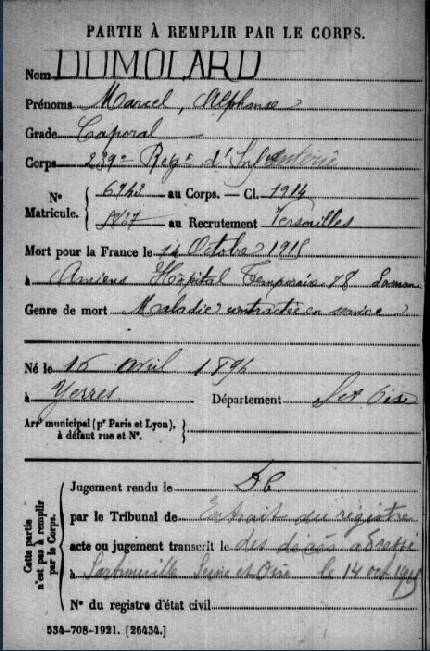 PARTIE À REMPLIR PAR LE CORPS.
Nom DUMOLARD
Prénoms Marcel, Alphonse
Grade Caporal
Corps 239e Regt d'Infanterie
N° Matricule. { 6943 au Corps. — Cl. 1914
au Recrutement Versailles
Mort pour la France le 14 Octobre 1915
à Amiens Hôpital Temporaire 18
Genre de mort Maladie contractée en service
Né le 16 avril 1894
à Yerres Département S et Oise
Arrt municipal (pr Paris et Lyon), à défaut rue et N°. }
Cette partie n'est pas à remplir par le Corps.
Jugement rendu le
par le Tribunal de Extrait du registre
acte ou jugement transcrit le des décès adressé
à Sartrouville Seine et Oise le 14 oct 1915
N° du registre d'état civil
534-708-1921. [26434.]